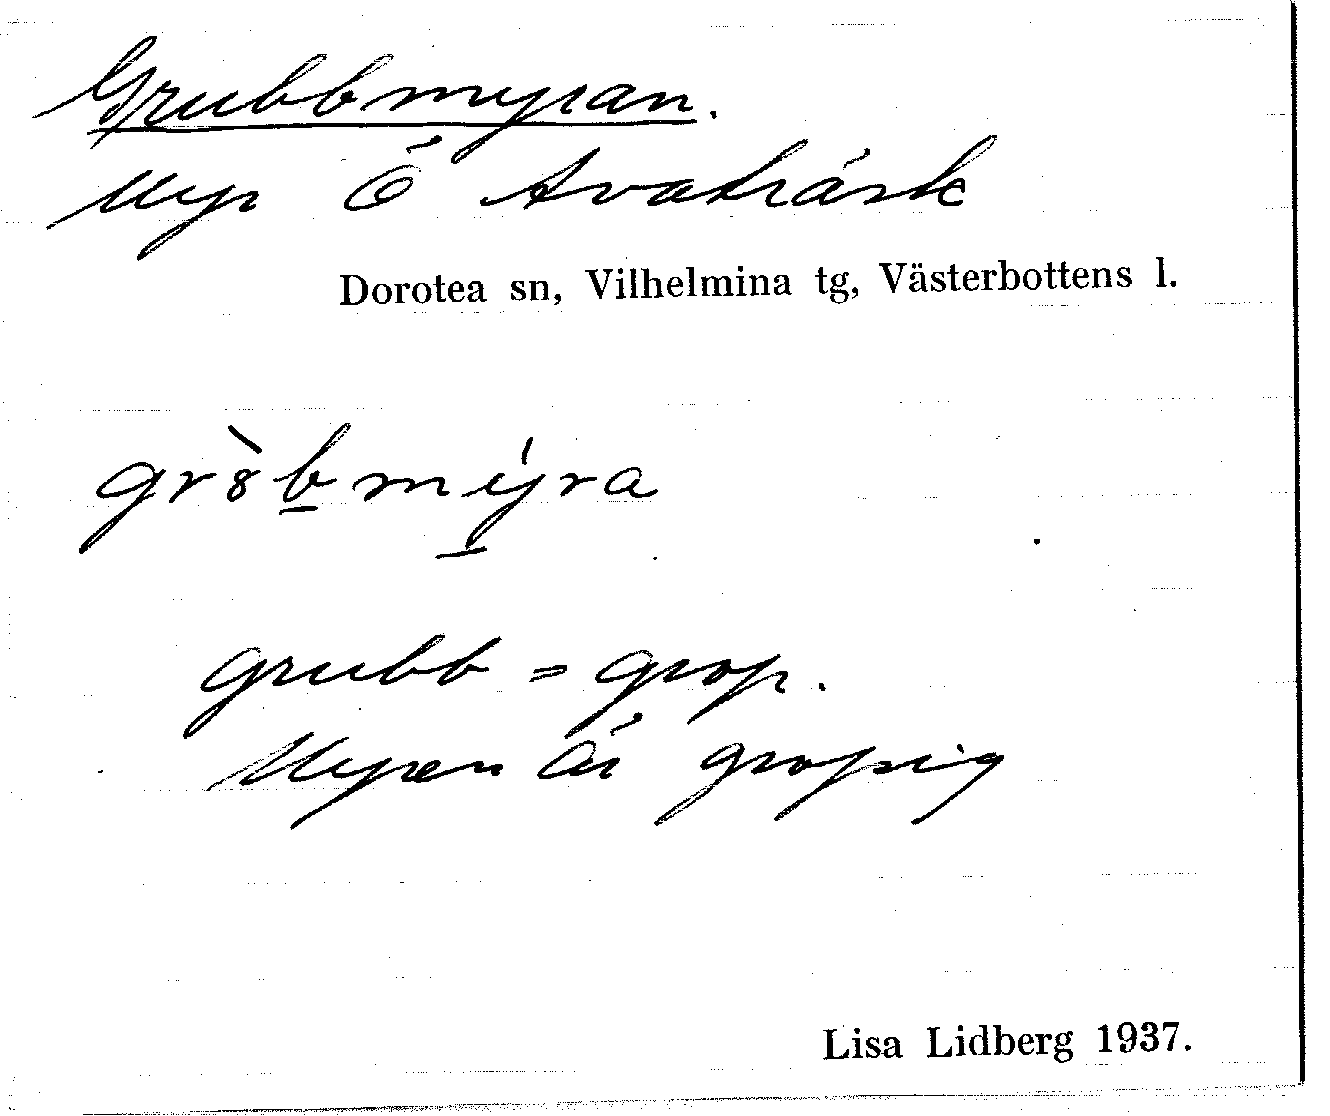 Grubbmyran.
Myr Ö Avaträsk
Dorotea sn, Vilhelmina tg, Västerbottens l.
gr8̀b̲mýra
grubb = grop.
Myren är gropig
Lisa Lidberg 1937.